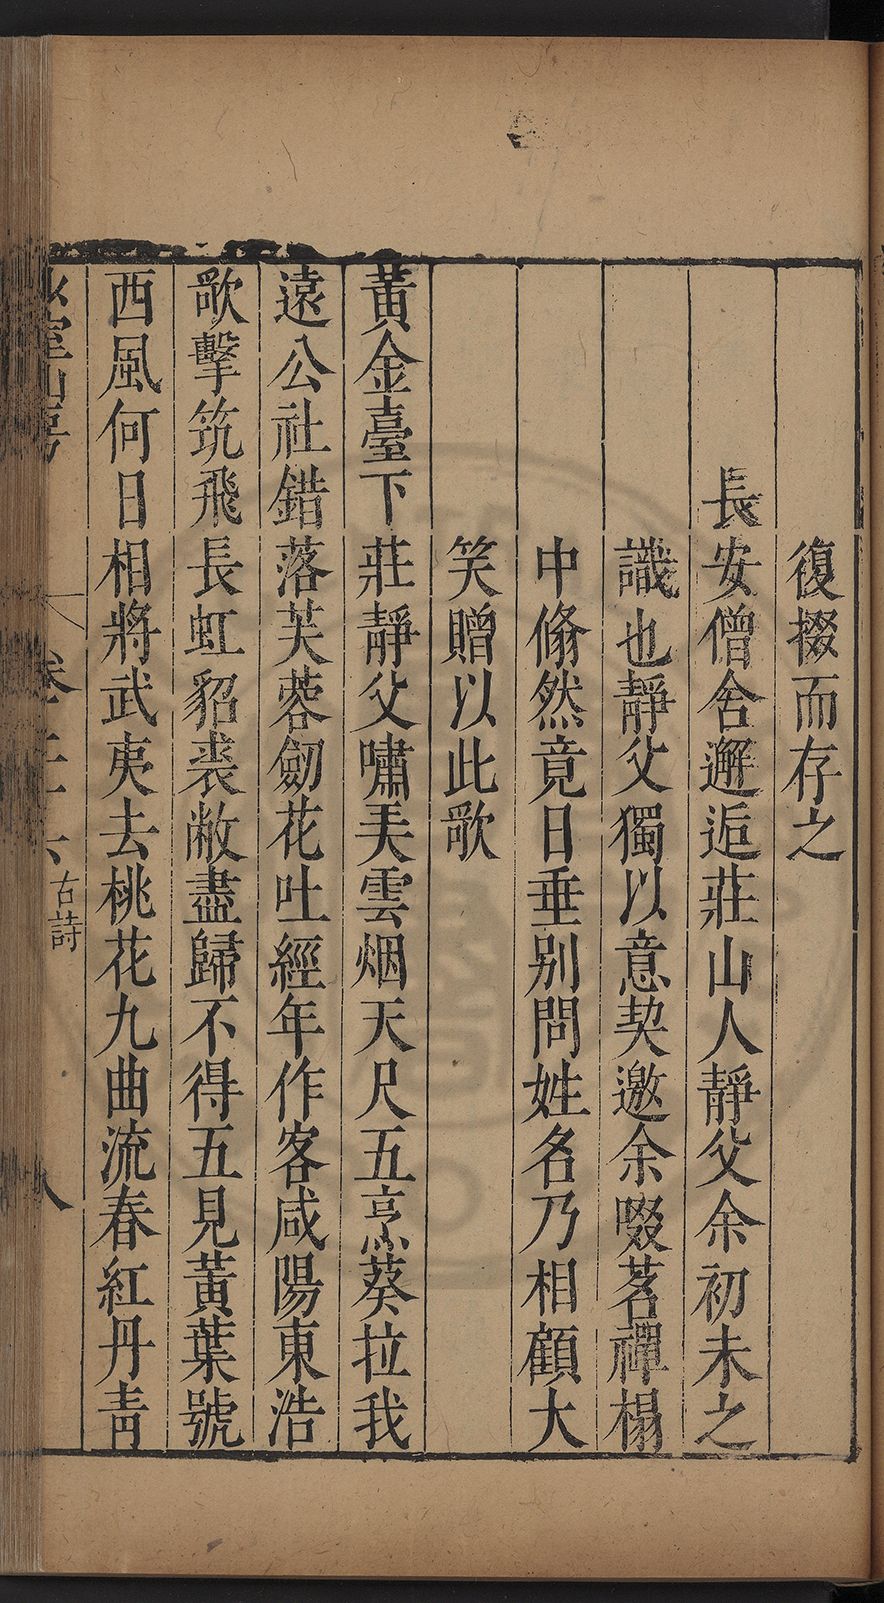 復掇而存之
長安僧舍邂逅莊山人靜父余初未之
識也靜父獨以意契邀余啜茗禪榻
中翛然竟日垂别問姓名乃相顧大
笑贈以此歌
黃金臺下莊靜父嘯美雲烟天尺五烹葵拉我
遠公社錯落芙蓉劒花吐經年作客咸陽東浩
歌擊筑飛長虹貂裘敝盡歸不得五見黃葉號
西風何日相將武夷去桃花九曲流春紅丹青
室山房
卷
古詩
八